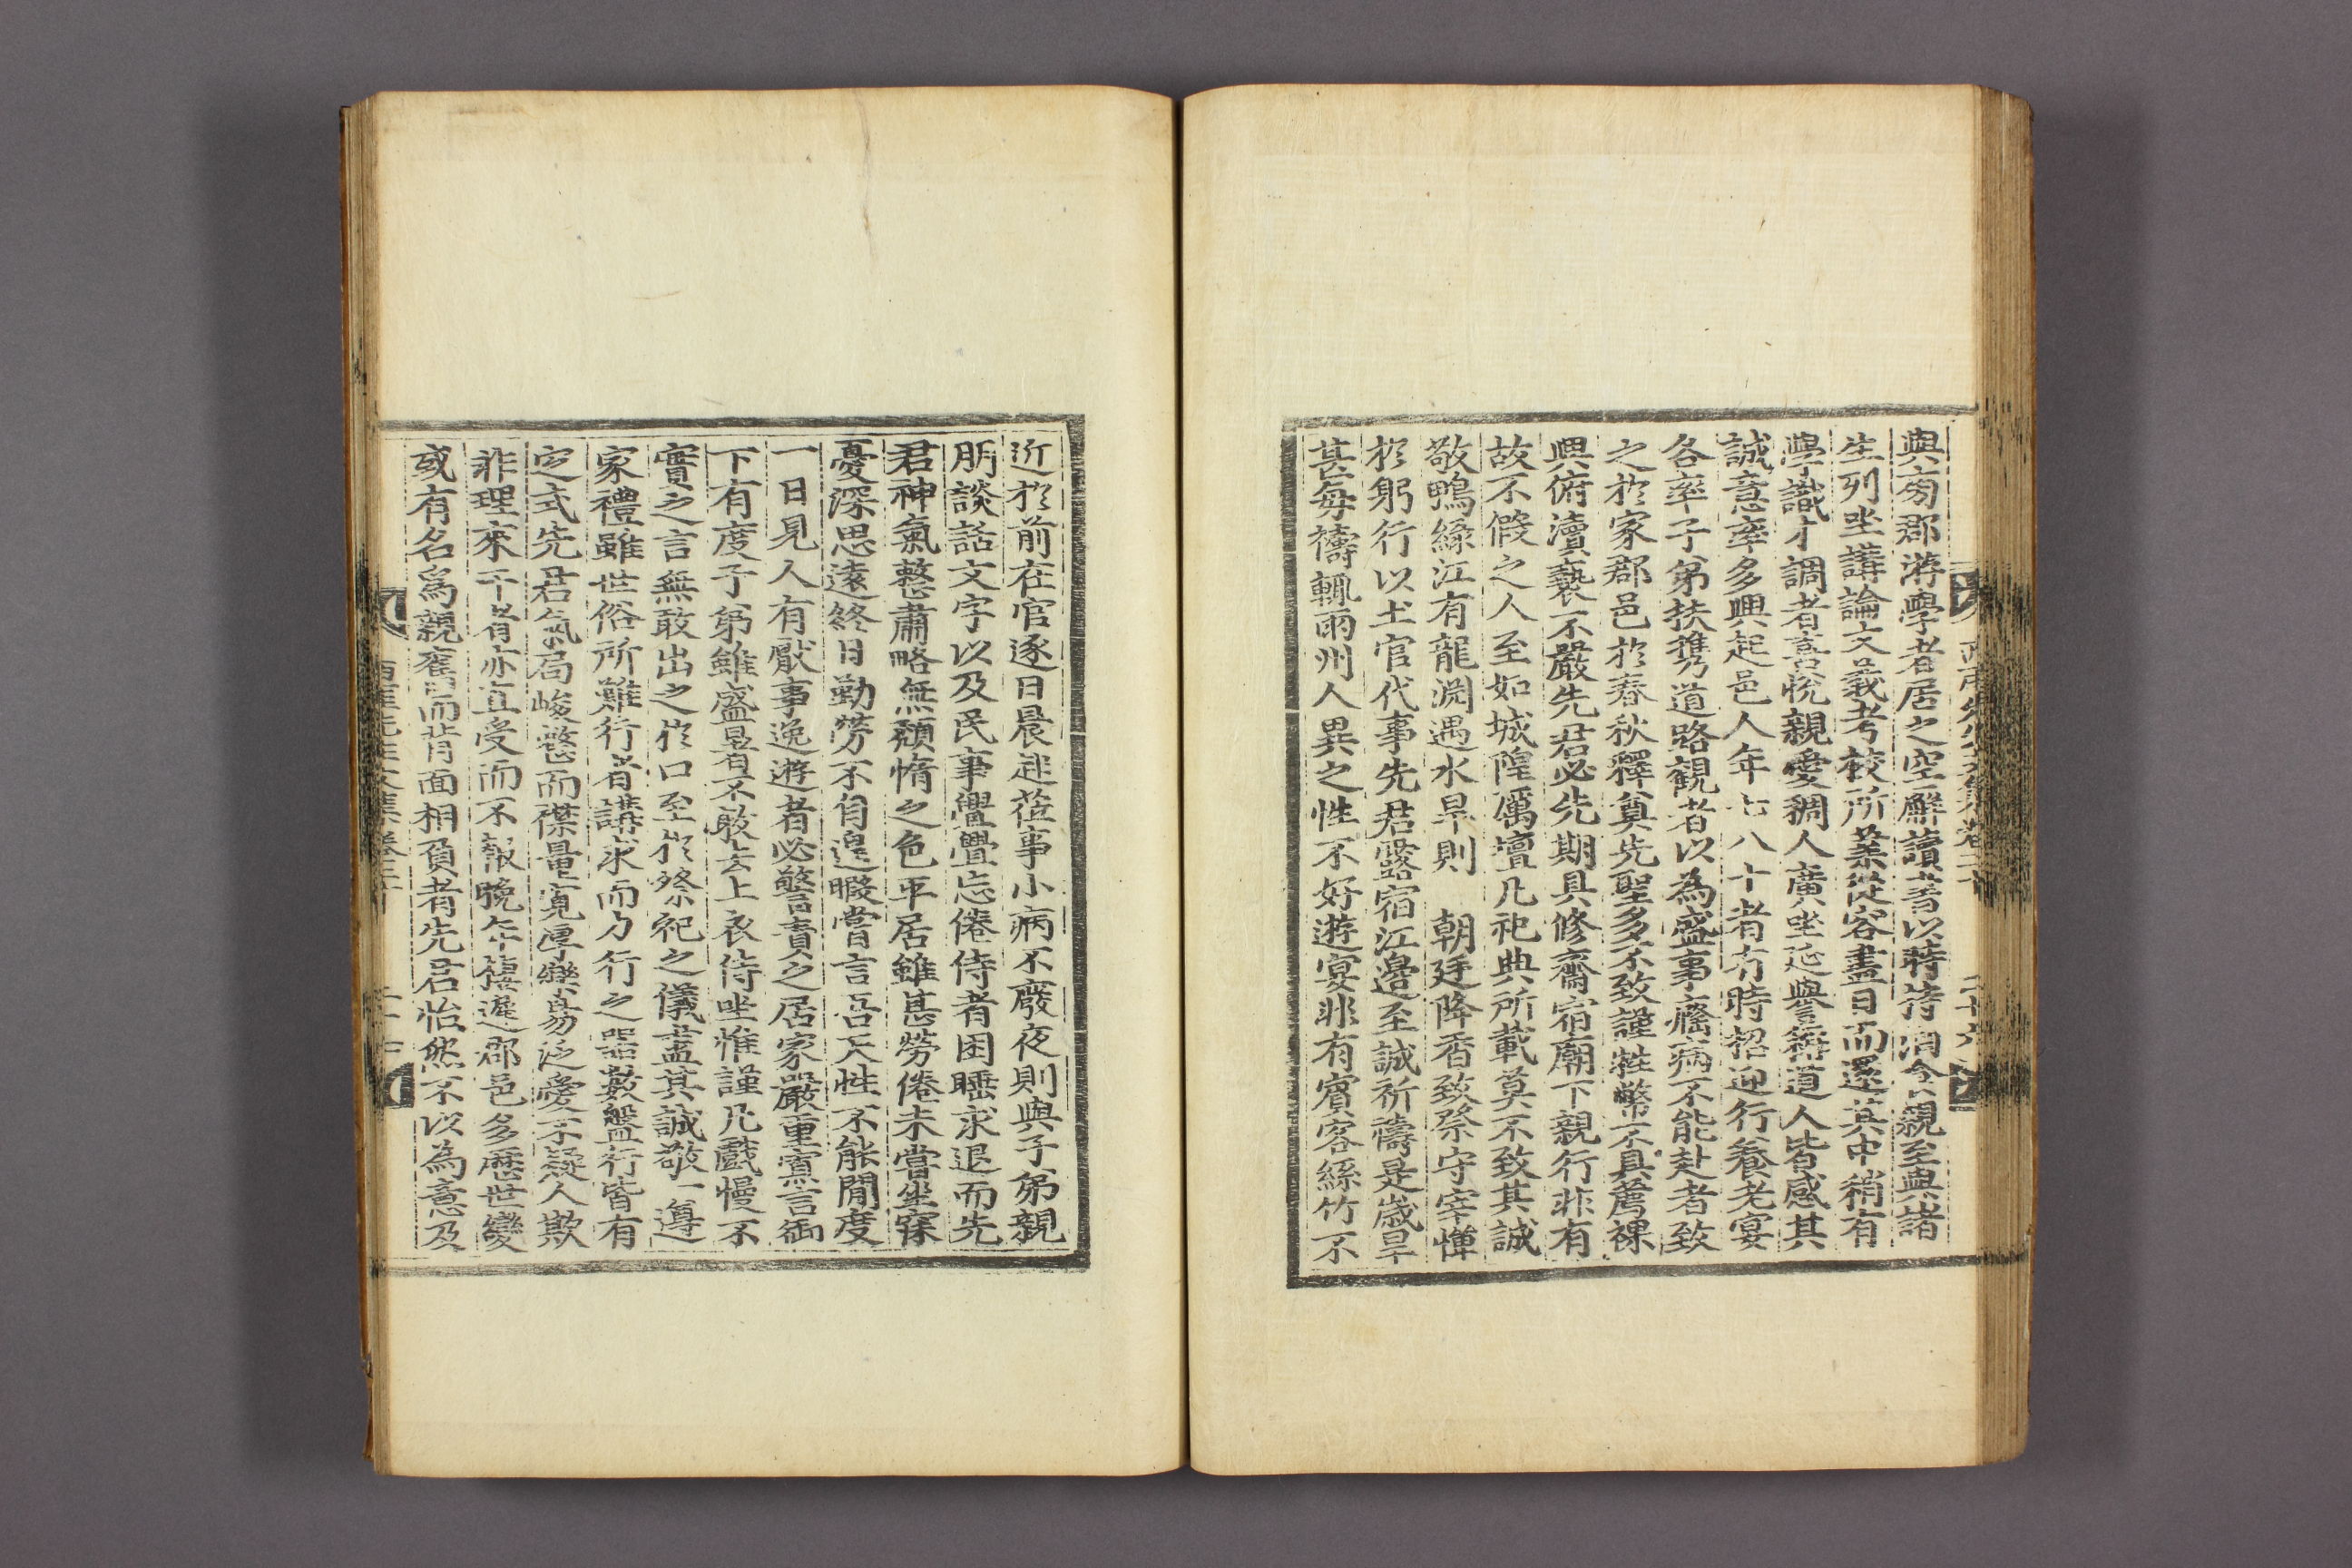 與旁郡游學者居之空廨讀書以時待朔會親至與諸
生列坐講論文義考校所業從容盡日而還其中稍有
學識才調者喜悅親愛稠人廣坐延譽稱道人皆感其
誠意率多興起邑人年七八十者有時招迎行養老宴
各率子弟扶携道路觀者以為盛事癃病不能赴者致
之扵家郡邑扵春秋釋奠先聖多不致謹牲幣不具薦祼
興俯瀆褻不嚴先君必先期具修齋宿廟下親行非有
故不假之人至如城隍厲壇凡祀典所載莫不致其誠
敬鴨綠江有龍淵遇水旱則 朝廷降香致祭守宰憚
扵躬行以土官代事先君露宿江邊至誠祈禱是歲旱
甚每禱輒雨州人異之性不好遊宴非有賓客絲竹不
西厓先生文集卷二十 二十六
近扵前在官逐日晨起莅事小病不廢夜則與子弟親
朋談話文字以及民事亹亹忘倦侍者困睡求退而先
君神氣整肅略無頹惰之色平居雖甚勞倦未嘗坐寐
憂深思遠終日勤勞不自遑暇嘗言吾天性不能閒度
一日見人有厭事逸遊者必警責之居家嚴重寡言御
下有度子弟雖盛暑不敢去上衣侍坐惟謹凡戲慢不
實之言無敢出之扵口至扵祭祀之儀盡其誠敬一遵
家禮雖世俗所難行者講求而力行之器數盤行皆有
定式先君氣局峻整而襟量寬厚樂易泛愛不疑人欺
非理來干者亦直受而不報晩年棲遲郡邑多歷世變
或有名爲親舊而背面相負者先君怡然不以為意及
西厓先生文集卷二十 二十七